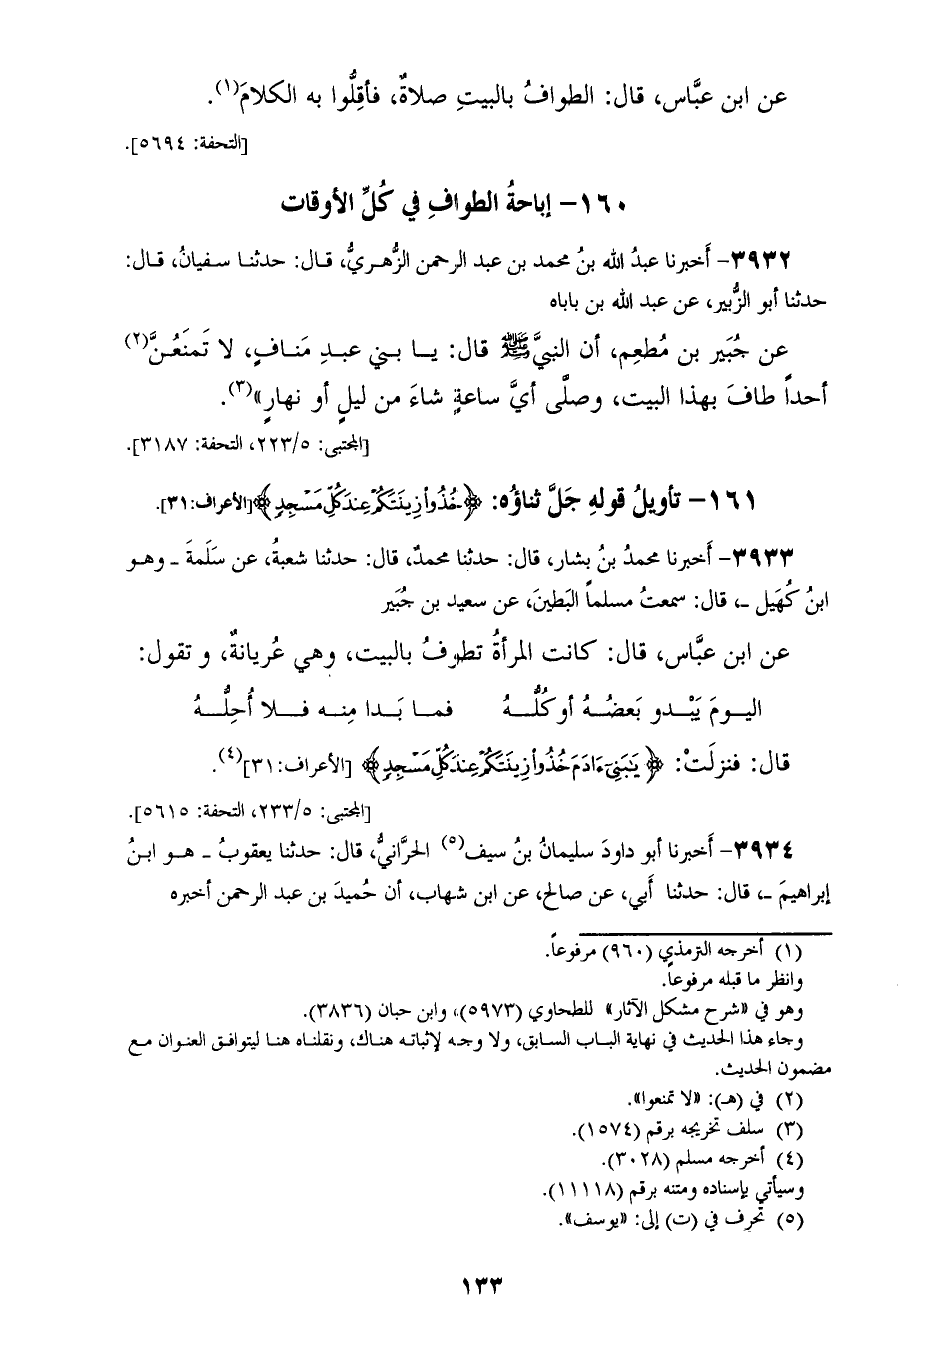 عن ابن عبَّاس، قال: الطوافُ بالبيتِ صلاةٌ، فأقِلُّوا به الكلامَ(١).
[التحفة: ٥٦٩٤].
١٦٠- إباحةُ الطوافِ في كُلِّ الأوقات
٣٩٣٢- أَخبرنا عبدُ الله بنُ محمد بن عبد الرحمن الزُّهريُّ، قال: حدثنا سفيانُ، قال:
حدثنا أبو الزُّبير، عن عبد الله بن باباه
عن جُبَير بن مُطعِم، أن النبيَّ ﷺ قال: يا بني عبدِ مَنافٍ، لا تَمنَعُنَّ(٢)
أحداً طافَ بهذا البيت، وصلَّى أيَّ ساعةٍ شاءَ من ليلٍ أو نهارٍ»(٣).
[المجتبى: ٢٢٣/٥، التحفة: ٣١٨٧].
١٦١- تأويلُ قولهِ جَلَّ ثناؤه: ﴿خُذُواْ زِينَتَكُمْ عِندَ كُلِّ مَسْجِدٍ﴾ [الأعراف: ٣١].
٣٩٣٣- أَخبرنا محمدُ بنُ بشار، قال: حدثنا محمدٌ، قال: حدثنا شعبةُ، عن سَلَمةَ ـ وهو
ابنُ كُهَيل ـ، قال: سمعتُ مسلماً البَطينَ، عن سعيد بن جُبَير
عن ابن عبَّاس، قال: كانت المرأةُ تطوفُ بالبيت، وهي عُريانةٌ، و تقول:
اليومَ يَبْدو بَعضُهُ أو كُلُّهُ فما بَدا مِنه فلا أُحِلُّهُ
قال: فنزلَتْ: ﴿يَبَنِيٓ ءَادَمَ خُذُواْ زِينَتَكُمْ عِندَ كُلِّ مَسْجِدٍ﴾ [الأعراف: ٣١](٤).
[المجتبى: ٢٣٣/٥، التحفة: ٥٦١٥].
٣٩٣٤- أَخبرنا أبو داودَ سليمانُ بنُ سيف(٥) الحرَّانيُّ، قال: حدثنا يعقوبُ ـ هو ابنُ
إبراهيمَ ـ، قال: حدثنا أَبي، عن صالح، عن ابن شهاب، أن حُميدَ بن عبد الرحمن أخبره
(١) أخرجه الترمذي (٩٦٠) مرفوعاً.
وانظر ما قبله مرفوعاً.
وهو في «شرح مشكل الآثار» للطحاوي (٥٩٧٣)، وابن حبان (٣٨٣٦).
وجاء هذا الحديث في نهاية الباب السابق، ولا وجه لإثباته هناك، ونقلناه هنا ليتوافق العنوان مع
مضمون الحديث.
(٢) في (هـ): «لا تمنعوا».
(٣) سلف تخريجه برقم (١٥٧٤).
(٤) أخرجه مسلم (٣٠٢٨).
وسيأتي بإسناده ومتنه برقم (١١١١٨).
(٥) تحرف في (ت) إلى: «يوسف».
١٣٣